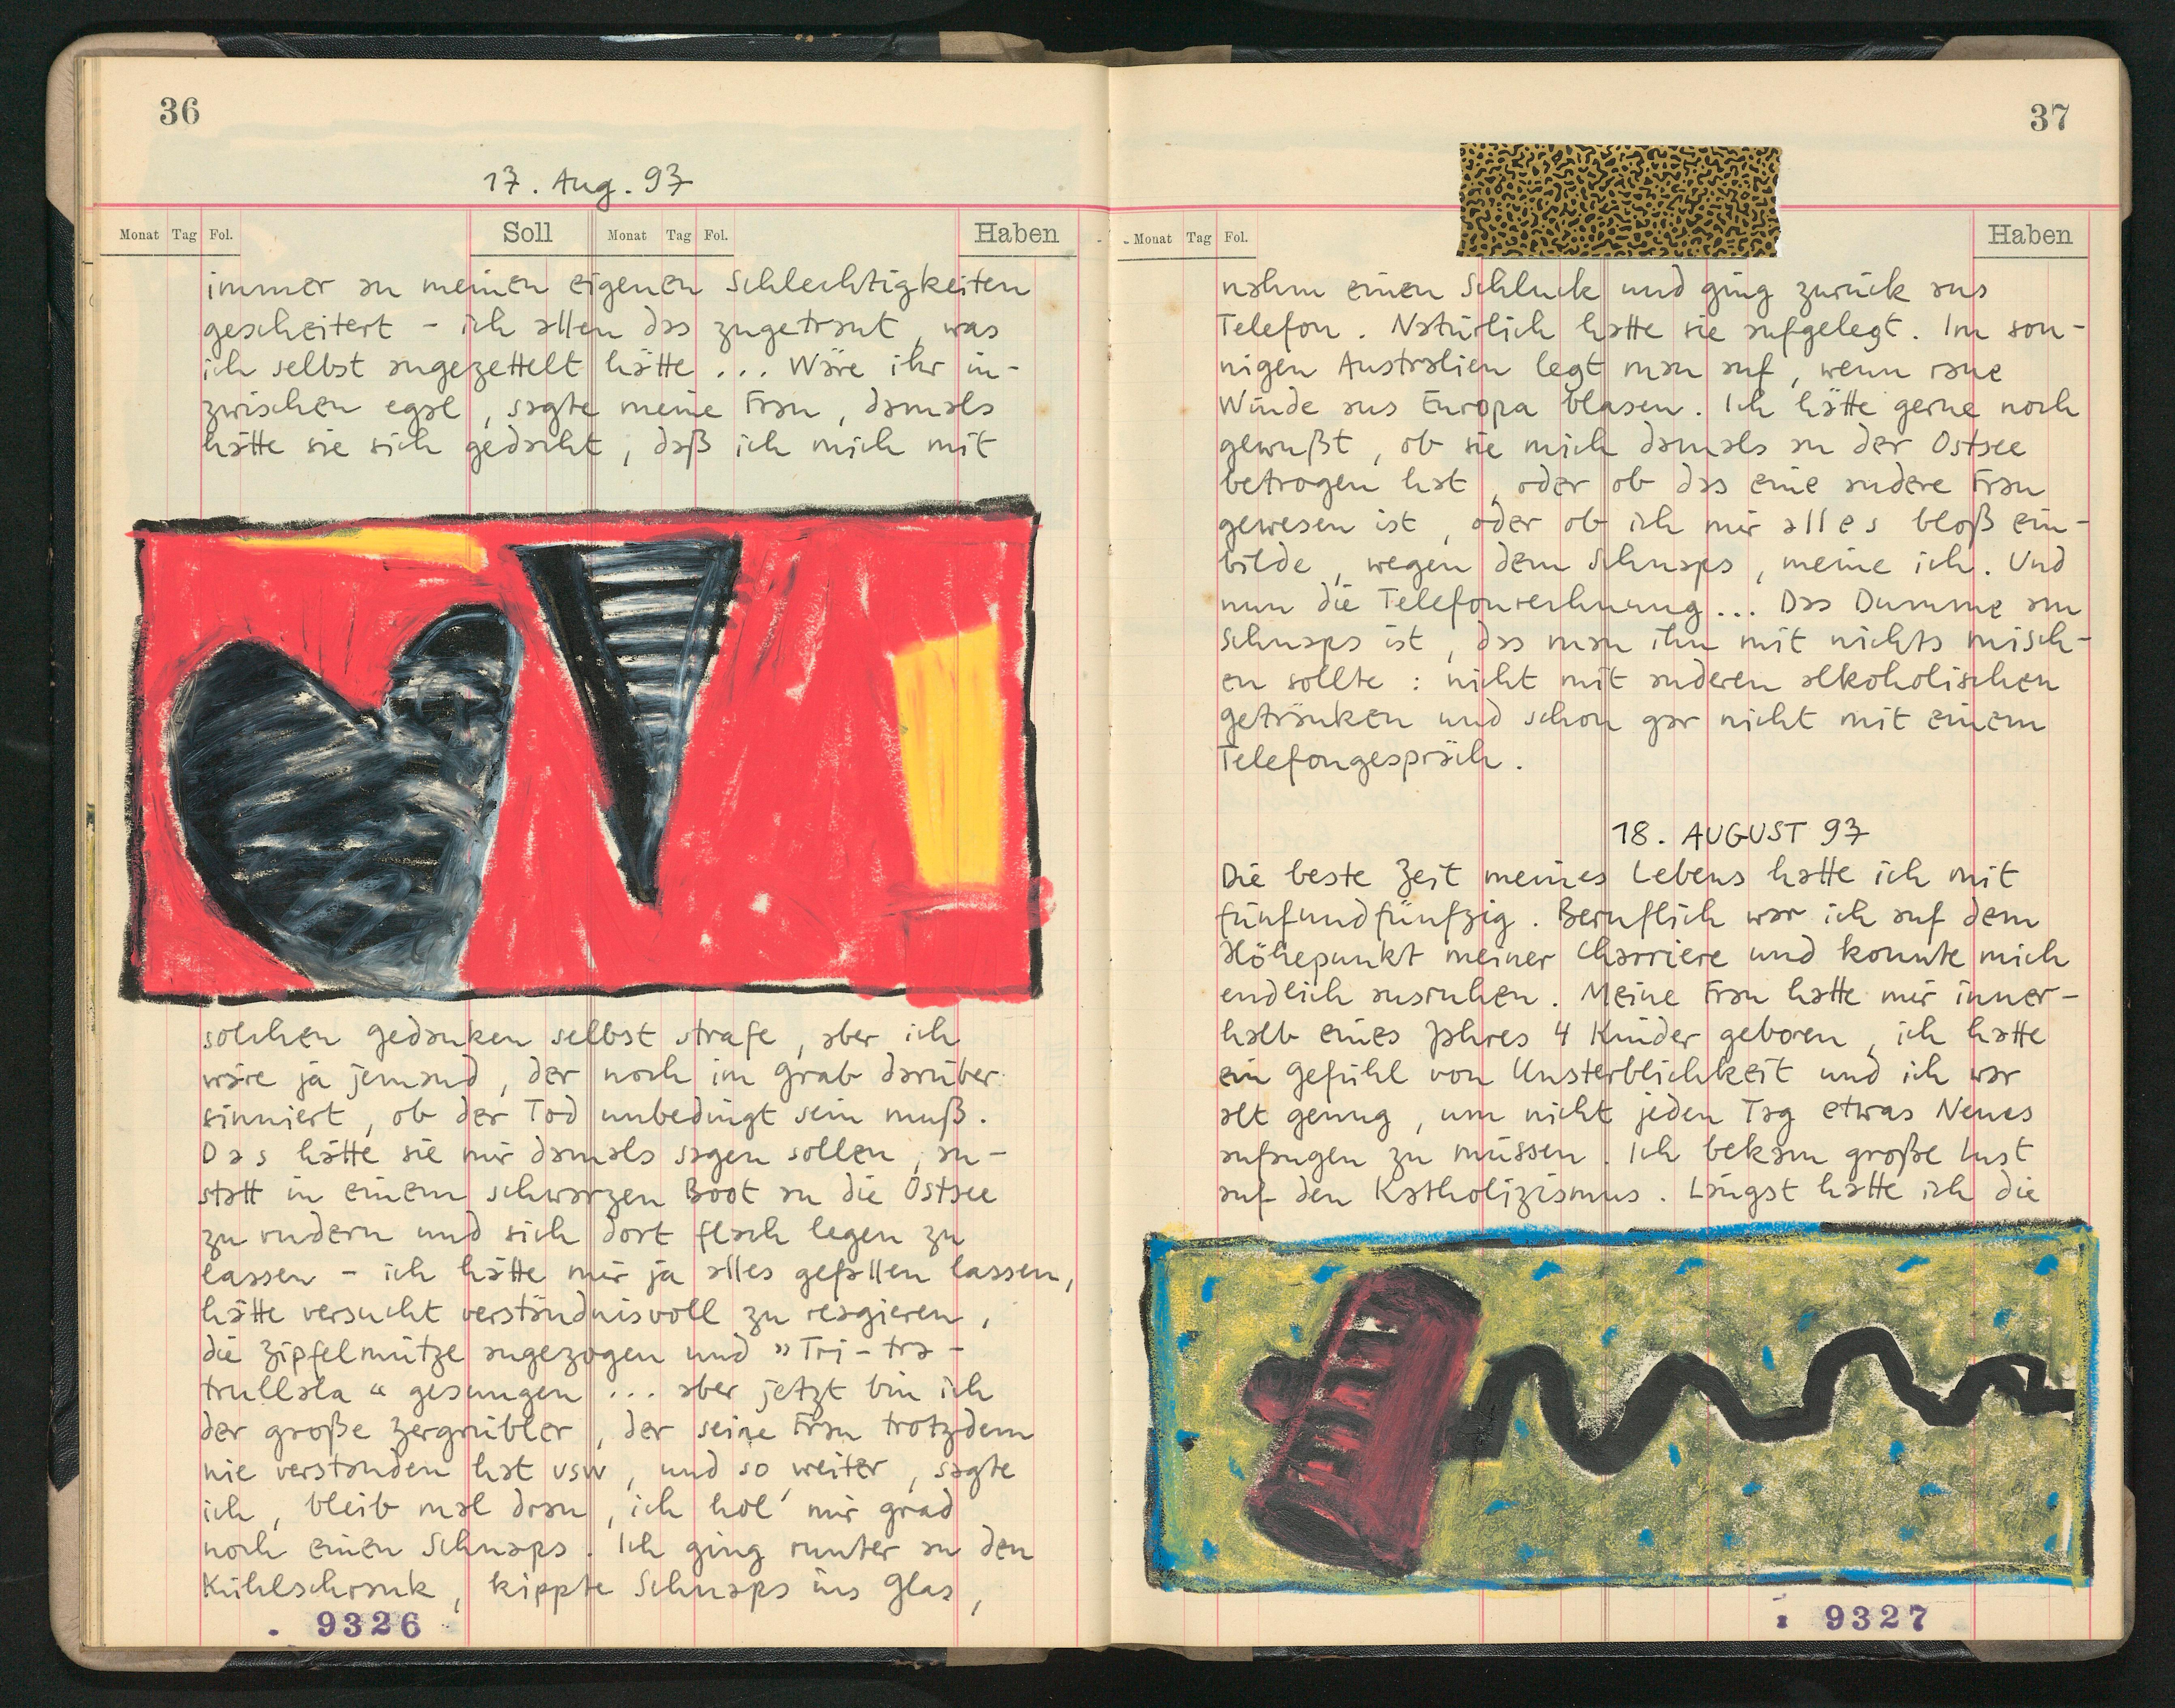 36
17. Aug. 97
Monat Tag Fol. Soll Monat Tag Fol. Haben
immer an meinen eigenen Schlechtigkeiten
gescheitert - ich allen das zugetraut, was
ich selbst angezettelt hätte ... Wäre ihr in-
zwischen egal, sagte meine Frau, damals
hätte sie sich gedacht, daß ich mich mit
solchen Gedanken selbst strafe, aber ich
wäre ja jemand, der noch im Grab darüber
sinniert, ob der Tod unbedingt sein muß.
Das hätte sie mir damals sagen sollen, an-
statt in einem schwarzen Boot an die Ostsee
zu rudern und sich dort flach legen zu
lassen - ich hätte mir ja alles gefallen lassen,
hätte versucht verständnisvoll zu reagieren,
die Zipfelmütze angezogen und "Tri-tra-
trullala" gesungen ... aber jetzt bin ich
der große Zergrübler, der seine Frau trotzdem
nie verstanden hat usw, und so weiter, sagte
ich, bleib mal dran, ich hol' mir grad
noch einen Schnaps. Ich ging runter an den
Kühlschrank, kippte Schnaps ins Glas,
9326
37
Monat Tag Fol. Haben
nahm einen Schluck und ging zurück ans
Telefon. Natürlich hatte sie aufgelegt. Im son-
nigen Australien legt man auf, wenn raue
Winde aus Europa blasen. Ich hätte gerne noch
gewußt, ob sie mich damals an der Ostsee
betrogen hat, oder ob das eine andere Frau
gewesen ist, oder ob ich mir alles bloß ein-
bilde, wegen dem Schnaps, meine ich. Und
nun die Telefonrechnung... Das Dumme am
Schnaps ist, das man ihn mit nichts misch-
en sollte: nicht mit anderen alkoholischen
getränken und schon gar nicht mit einem
Telefongespräch.
18. AUGUST 97
Die beste Zeit meines Lebens hatte ich mit
fünfundfünfzig. Beruflich war ich auf dem
Höhepunkt meiner Charriere und konnte mich
endlich ausruhen. Meine Frau hatte mir inner-
halb eines Jahres 4 Kinder geboren, ich hatte
ein Gefühl von Unsterblichkeit und ich war
alt genug, um nicht jeden Tag etwas Neues
anfangen zu müssen. Ich bekam große Lust
auf den Katholizismus. Längst hatte ich die
9327